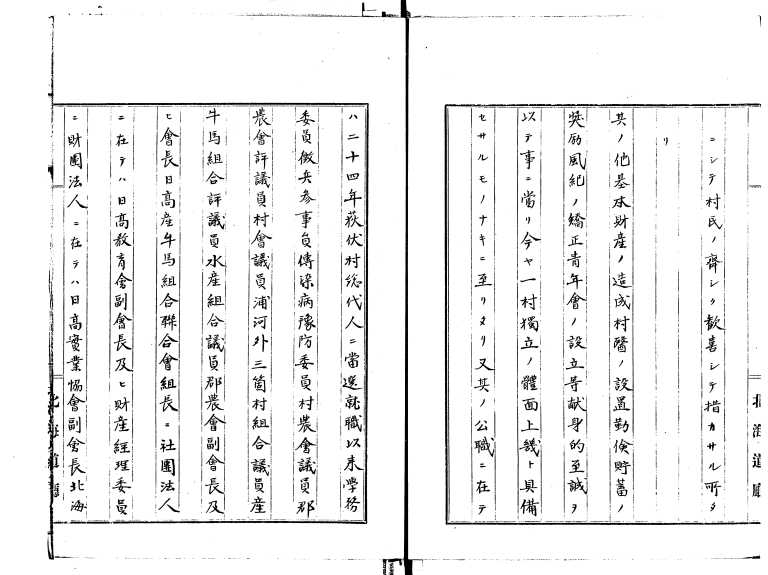 ニシテ村民ノ齊シク歓喜シテ措カサル所タ
リ
其ノ他基本財産ノ造成村醫ノ設置勤倹貯蓄ノ
奨励風紀ノ矯正青年會ノ設立等献身的至誠ヲ
以テ事ニ當リ今ヤ一村獨立ノ體面上幾ト具備
セサルモノナキニ至リタリ又其ノ公職ニ在テ
北海道廳
ハ二十四年荻伏村総代人ニ當選就職以来學務
委員徴兵参事員傳染病豫防委員村農會議員郡
農會評議員村會議員浦河外三箇村組合議員産
牛馬組合評議員水産組合議員郡農會副會長及
ヒ會長日高産牛馬組合聯合會組長ニ社團法人
ニ在テハ日高教育會副會長及ヒ財産經理委員
ニ財團法人ニ在テハ日高實業協會副會長北海
北海道廳